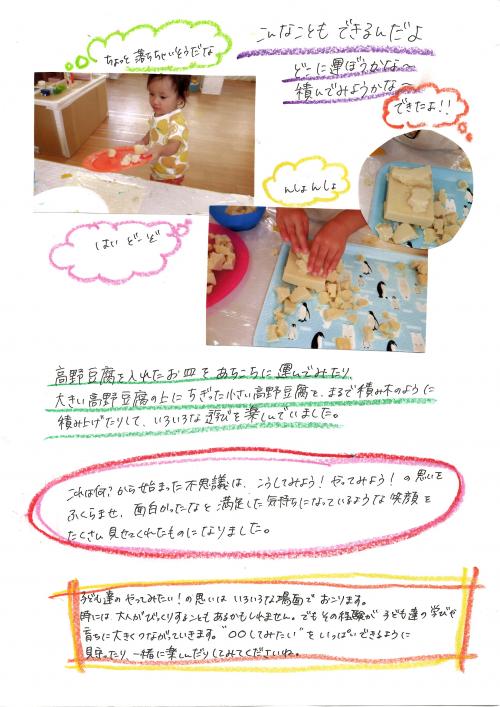 こんなことも できるんだよ
ちょっと 落ちちゃいそうだな
どこに運ぼうかな〜
積んでみようかな〜
できたよ!!
んしょんしょ
はい どーぞ
高野豆腐を入れたお皿を あちこちに 運んでみたり、
大きい高野豆腐の上に ちぎった小さい高野豆腐を、まるで積み木のように
積み上げたりして、いろいろな 遊びを 楽しんでいました。
これは何?から始まった不思議は、こうしてみよう!やってみよう!の思いを
ふくらませ、面白かったなと 満足した気持ちになっているような 笑顔を
たくさん見せてくれたものになりました。
子ども達の やってみたい!の思いは いろいろな場面で おこります。
時には 大人がびっくりすることもあるかもしれません。でもその経験が 子ども達の学びや
育ちに大きくつながっていきます。"〇〇してみたい"を いっぱいできるように
見守ったり、一緒に楽しんだりしてみてくださいね。